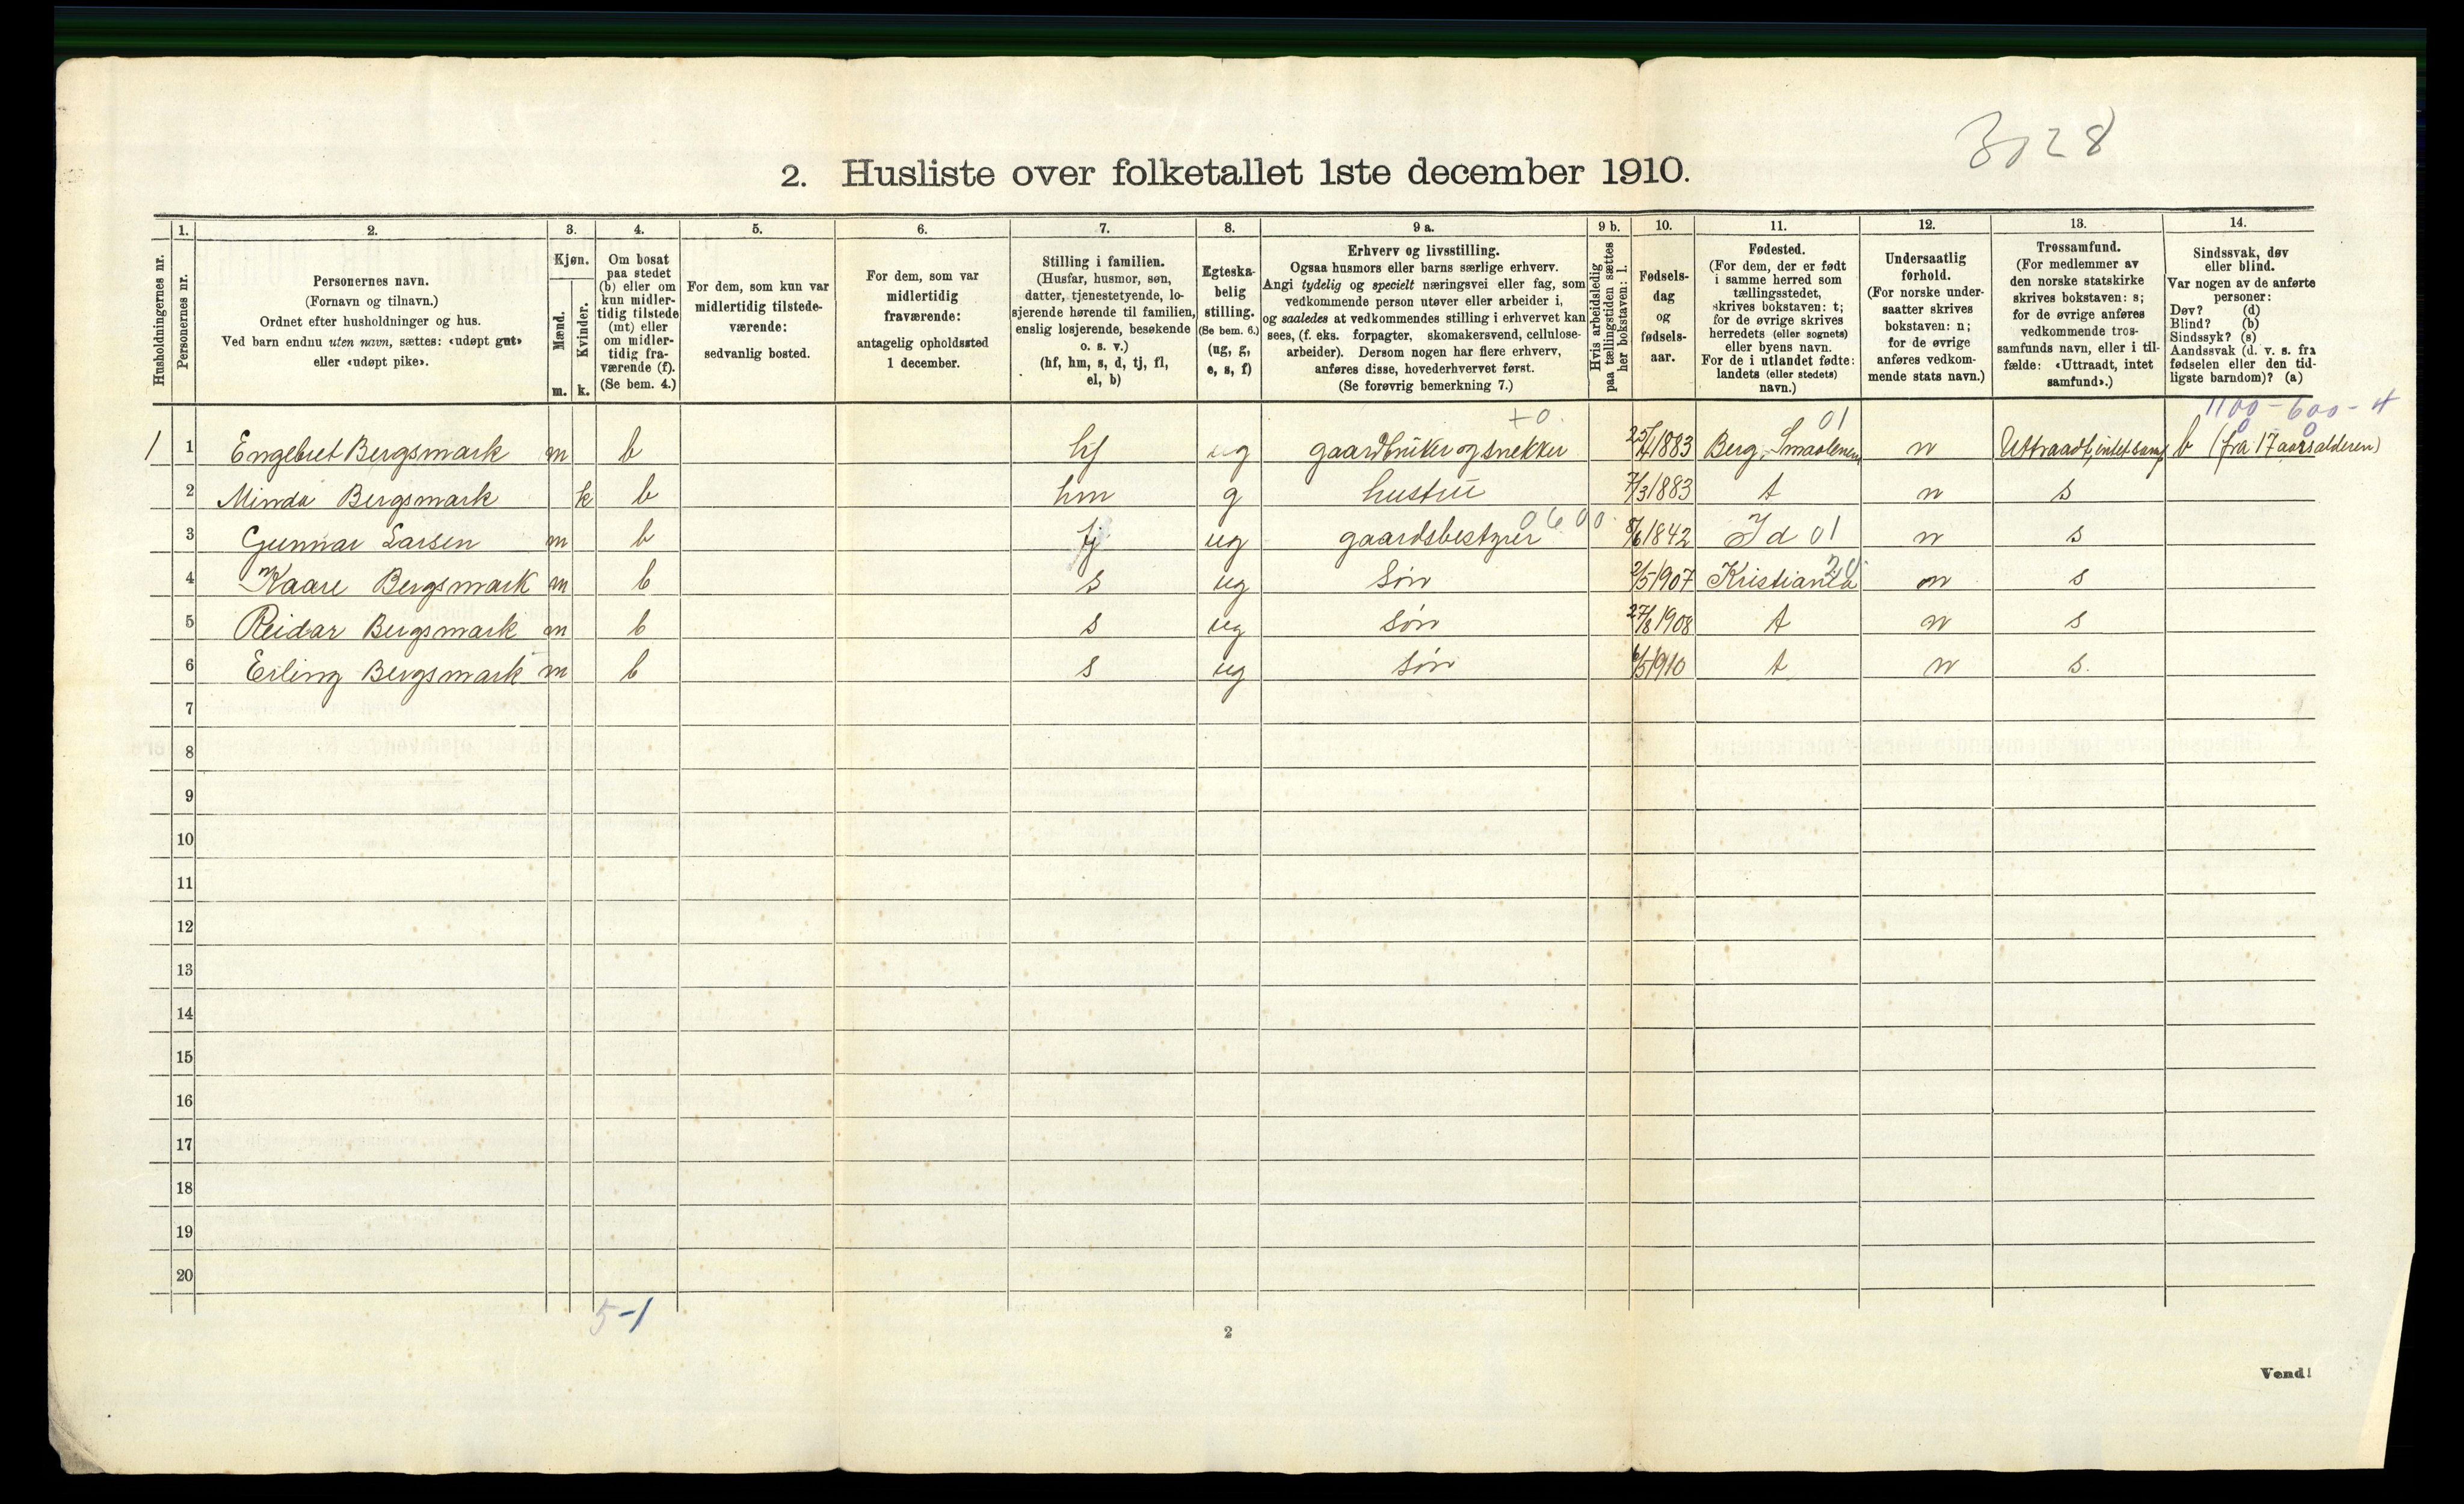 3028
2. Husliste over folketallet 1ste december 1910.
Husholdningernes nr.
1.
Personernes nr.
2.
Personernes navn.
(Fornavn og tilnavn.)
Ordnet efter husholdninger og hus.
Ved barn endnu uten navn, sættes: «udøpt gut»
eller «udøpt pike».
3.
Kjøn.
Mænd.
Kvinder.
m. k.
4.
Om bosat
paa stedet
(b) eller om
kun midler-
tidig tilstede
(mt) eller
om midler-
tidig fra-
værende (f).
(Se bem. 4.)
5.
For dem, som kun var
midlertidig tilstede-
værende:
sedvanlig bosted.
6.
For dem, som var
midlertidig
fraværende:
antagelig opholdssted
1 december.
7.
Stilling i familien.
(Husfar, husmor, søn,
datter, tjenestetyende, lo-
sjerende hørende til familien,
enslig losjerende, besøkende
o. s. v.)
(hf, hm, s, d, tj, fl,
el, b)
8.
Egteska-
belig
stilling.
(Se bem. 6.)
(ug, g,
e, s, f)
9 a.
Erhverv og livsstilling.
Ogsaa husmors eller barns særlige erhverv.
Angi tydelig og specielt næringsvei eller fag, som
vedkommende person utøver eller arbeider i,
og saaledes at vedkommendes stilling i erhvervet kan
sees, (f. eks. forpagter, skomakersvend, cellulose-
arbeider). Dersom nogen har flere erhverv,
anføres disse, hovederhvervet først.
(Se forøvrig bemerkning 7.)
9 b.
Hvis arbeidsledig
paa tællingstiden sættes
her bokstaven: l.
10.
Fødsels-
dag
og
fødsels-
aar.
11.
Fødested.
(For dem, der er født
i samme herred som
tællingsstedet,
skrives bokstaven: t;
for de øvrige skrives
herredets (eller sognets)
eller byens navn.
For de i utlandet fødte:
landets (eller stedets)
navn.)
12.
Undersaatlig
forhold.
(For norske under-
saatter skrives
bokstaven: n;
for de øvrige
anføres vedkom-
mende stats navn.)
13.
Trossamfund.
(For medlemmer av
den norske statskirke
skrives bokstaven: s;
for de øvrige anføres
vedkommende tros-
samfunds navn, eller i til-
fælde: «Uttraadt, intet
samfund».)
14.
Sindssvak, døv
eller blind.
Var nogen av de anførte
personer:
Døv? (d)
Blind? (b)
Sindssyk? (s)
Aandssvak (d. v. s. fra
fødselen eller den tid-
ligste barndom)? (a)
+0. 01 1100-600-4
1 1 Engebret Bergsmark m b hf ug gaardbruker og snekker 25/4 1883 Berg, Smaalenene n Uttraadt, intet samf b (fra 17 aarsalderen)
2 Minda Bergsmark k b hm g hustru 7/3 1883 t n s
0600
3 Gunnar Larsen m b tj ug gaardsbestyrer 8/6 1842 Id 01 n s
4 Kaare Bergsmark m b s ug Søn 2/5 1907 Kristiania n s
5 Reidar Bergsmark m b s ug søn 27/8 1908 t n s
6 Erling Bergsmark m b s ug søn 6/5 1910 t n s.
7
8
9
10
11
12
13
14
15
16
17
18
19
20
5-1
2
Vend!